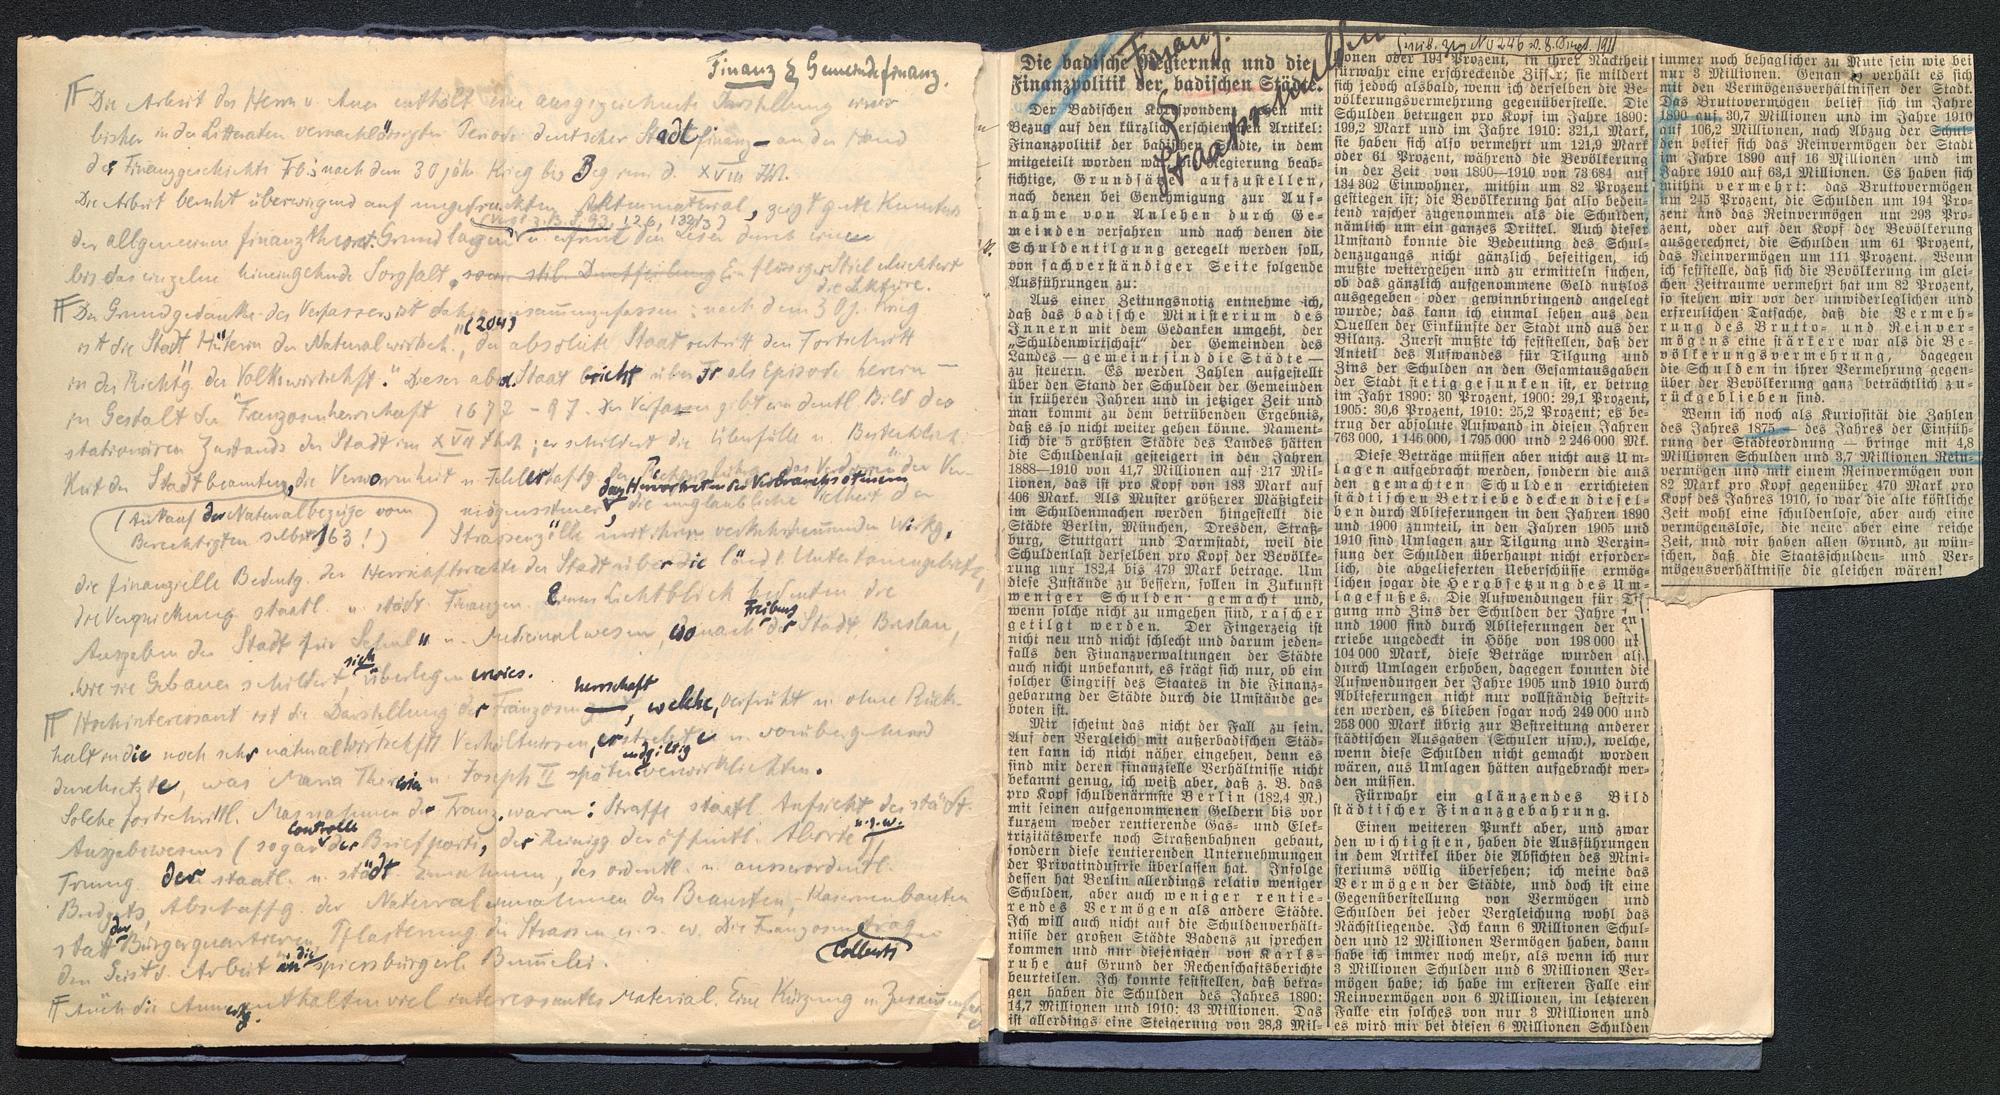 Finanz & Gemeindefinanz.
Die Arbeit des Herrn v. Auer enthält eine ausgezeichnete Darstellung einer
bisher in der Litteratur vernachlässigten Periode deutscher Stadtfinanz – an der Hand
der Finanzgeschichte Frb's nach dem 30 jähr Krieg bis Beginn d. XVIII JH.
Die Arbeit beruht überwiegend auf ungedruckten Aktenmaterial, zeigt gute Kenntnis
(vergl z. B. S. 93, 126, 132/3)
der allgemeinen finanztheoret. Grundlagen u. erfreut den Leser durch eine
bis das einzelne hineingehende Sorgfalt, Ein flüssiger Stiel erleichtert
die Lektüre.
Der Grundgedanke des Verfassers ist daher zusammenzufassen: nach dem 30j. Krieg
ist die Stadt Hüterin der Naturalwirtsch., "(204) der absolute Staat vertritt den Fortschritt
in der Richtg der Volkswirtschft." Dieser abs. Staat bricht über Fr als Episode herein –
in Gestalt der Franzosenherrschaft 1677 – 97. Der Verfasser gibt ein deutl. Bild des
stationären Zustands der Stadt im XVII Jhrh; er schildert die Überfülle u. Bestechlich-
keit der Stadtbeamten, die Verworrenheit u. Fehlerhaftg der
das Hervortreten der Verbrauchssteuern
(Ankauf der Naturalbezüge vom
die unglaubliche Vielheit der
Berechtigten selbst 163!)
Strassenzölle mit ihrer verkehrshemmenden Wirkg.
die finanzielle Bedeutg. der Herrschaftsrechte der Stadt über die länd. Untertanengebiete,
die Verquickung staatl. u. städt. Finanzen. Einen Lichtblick bedeuten die
Ausgaben der Stadt für Schul- u. Medicinalwesen, wonach Freiburg der Stadt Breslau,
wie sie Gebauer schildert, sich überlegen erwies.
Hochinteressant ist die Darstellung der Franzosenherrschaft, welche, verfrüht u. ohne Rück-
halt in die noch sehr naturalwirtschftl Verhältnissen, erstrebte u. vorübergehend
durchsetzte, was Maria Theresia u. Joseph II später endgiltig verwirklichten.
Solche fortschrittl. Massnahmen der Franz. waren: Straffe staatl. Aufsicht des städt.
Ausgabewesens (sogar Controlle der Briefporti, der Reinigg der öffentl. Aborte u.s.w.
Trennung der staatl. u. städt Einnahmen, des ordentl. u. ausserordentl.
Budgets, Abschaffg. der Naturaleinnahmen der Beamten, Kasernenbauten
statt der Bürgerquartieren, Pflasterung der Strassen u. s. w. Die Franzosen tragen
den Geist d. Arbeit in die spiessbürgerl. Bummelei.
Colberts
Auch die Anmerkg. enthalten viel interessantes Material. Eine Kürzung u.
Finanz.
Staatsschulden
Die badische Regierung und die
Finanzpolitik der badischen Städte.
Der Badischen Korrespondenz gehen mit
Bezug auf den kürzlich erschienenen Artikel:
Finanzpolitik der badischen Städte, in dem
mitgeteilt worden war, die Regierung beab-
sichtige, Grundsätze aufzustellen,
nach denen bei Genehmigung zur Auf-
nahme von Anlehen durch Ge-
meinden verfahren und nach denen die
Schuldentilgung geregelt werden soll,
von sachverständiger Seite folgende
Ausführungen zu:
Aus einer Zeitungsnotiz entnehme ich,
daß das badische Ministerium des
Innern mit dem Gedanken umgeht, der
„Schuldenwirtschaft“ der Gemeinden des
Landes — gemeint sind die Städte —
zu steuern. Es werden Zahlen aufgestellt
über den Stand der Schulden der Gemeinden
in früheren Jahren und in jetziger Zeit und
man kommt zu dem betrübenden Ergebnis,
daß es so nicht weiter gehen könne. Nament-
lich die 5 größten Städte des Landes hätten
die Schuldenlast gesteigert in den Jahren
1888—1910 von 41,7 Millionen auf 217 Mil-
lionen, das ist pro Kopf von 183 Mark auf
406 Mark. Als Muster größerer Mäßigkeit
im Schuldenmachen werden hingestellt die
Städte Berlin, München, Dresden, Straß-
burg, Stuttgart und Darmstadt, weil die
Schuldenlast derselben pro Kopf der Bevölke-
rung nur 182,4 bis 479 Mark betrage. Um
diese Zustände zu bessern, sollen in Zukunft
weniger Schulden gemacht und,
wenn solche nicht zu umgehen sind, rascher
getilgt werden. Der Fingerzeig ist
nicht neu und nicht schlecht und darum jeden-
falls den Finanzverwaltungen der Städte
auch nicht unbekannt, es frägt sich nur, ob ein
solcher Eingriff des Staates in die Finanz-
gebarung der Städte durch die Umstände ge-
boten ist.
Mir scheint das nicht der Fall zu sein.
Auf den Vergleich mit außerbadischen Städ-
ten kann ich nicht näher eingehen, denn es
sind mir deren finanzielle Verhältnisse nicht
bekannt genug, ich weiß aber, daß z. B. das
pro Kopf schuldenärmste Berlin (182,4 M.)
mit seinen aufgenommenen Geldern bis vor
kurzem weder rentierende Gas- und Elek-
trizitätswerke noch Straßenbahnen gebaut,
sondern diese rentierenden Unternehmungen
der Privatindustrie überlassen hat. Infolge
dessen hat Berlin allerdings relativ weniger
Schulden, aber auch weniger rentie-
rendes Vermögen als andere Städte.
Ich will auch nicht auf die Schuldenverhält-
nisse der großen Städte Badens zu sprechen
kommen und nur diejenigen von Karls-
ruhe auf Grund der Rechenschaftsberichte
beurteilen. Ich konnte feststellen, daß betra-
gen haben die Schulden des Jahres 1890:
14,7 Millionen und 1910: 43 Millionen. Das
ist allerdings eine Steigerung von 28,3 Mil-
Freib. Ztg No 246 v. 8. Sept. 1911
lionen oder 194 Prozent, in ihrer Nacktheit
fürwahr eine erschreckende Ziffer; sie mildert
sich jedoch alsbald, wenn ich derselben die Be-
völkerungsvermehrung gegenüberstelle. Die
Schulden betrugen pro Kopf im Jahre 1890:
199,2 Mark und im Jahre 1910: 321,1 Mark,
sie haben sich also vermehrt um 121,9 Mark
oder 61 Prozent, während die Bevölkerung
in der Zeit von 1890—1910 von 73 684 auf
134 302 Einwohner, mithin um 82 Prozent
gestiegen ist; die Bevölkerung hat also bedeu-
tend rascher zugenommen als die Schulden,
nämlich um ein ganzes Drittel. Auch dieser
Umstand konnte die Bedeutung des Schul-
denzugangs nicht gänzlich beseitigen, ich
mußte weitergehen und zu ermitteln suchen,
ob das gänzlich aufgenommene Geld nutzlos
ausgegeben oder gewinnbringend angelegt
wurde; das kann ich einmal sehen aus den
Quellen der Einkünfte der Stadt und aus der
Bilanz. Zuerst mußte ich feststellen, daß der
Anteil des Aufwandes für Tilgung und
Zins der Schulden an den Gesamtausgaben
der Stadt stetig gesunken ist, er betrug
im Jahr 1890: 30 Prozent, 1900: 29,1 Prozent,
1905: 30,6 Prozent, 1910: 25,2 Prozent; es be-
trug der absolute Aufwand in diesen Jahren
763 000, 1 146 000, 1 795 000 und 2 246 000 Mk.
Diese Beträge müssen aber nicht aus Um-
lagen aufgebracht werden, sondern die aus
den gemachten Schulden errichteten
städtischen Betriebe decken diesel-
ben durch Ablieferungen in den Jahren 1890
und 1900 zumteil, in den Jahren 1905 und
1910 sind Umlagen zur Tilgung und Verzin-
sung der Schulden überhaupt nicht erforder-
lich, die abgelieferten Ueberschüsse ermög-
lichen sogar die Herabsetzung des Um-
lagefußes. Die Aufwendungen für Til-
gung und Zins der Schulden der Jahre
und 1900 sind durch Ablieferungen der
triebe ungedeckt in Höhe von 198 000
104 000 Mark, diese Beträge wurden als
durch Umlagen erhoben, dagegen konnten die
Aufwendungen der Jahre 1905 und 1910 durch
Ablieferungen nicht nur vollständig bestrit-
ten werden, es blieben sogar noch 249 000 und
253 000 Mark übrig zur Bestreitung anderer
städtischen Ausgaben (Schulen usw.), welche,
wenn diese Schulden nicht gemacht worden
wären, aus Umlagen hätten aufgebracht wer-
den müssen.
Fürwahr ein glänzendes Bild
städtischer Finanzgebahrung.
Einen weiteren Punkt aber, und zwar
den wichtigsten, haben die Ausführungen
in dem Artikel über die Absichten des Mini-
steriums völlig übersehen; ich meine das
Vermögen der Städte, und doch ist eine
Gegenüberstellung von Vermögen und
Schulden bei jeder Vergleichung wohl das
Nächstliegende. Ich kann 6 Millionen Schul-
den und 12 Millionen Vermögen haben, dann
habe ich immer noch mehr, als wenn ich nur
3 Millionen Schulden und 6 Millionen Ver-
mögen habe; ich habe im ersteren Falle ein
Reinvermögen von 6 Millionen, im letzteren
Falle ein solches von nur 3 Millionen und
es wird mir bei diesen 6 Millionen Schulden
immer noch behaglicher zu Mute sein wie bei
den 3 Millionen. Genau so verhält es sich
mit den Vermögensverhältnissen der Stadt.
Das Bruttovermögen belief sich im Jahre
1890 auf 30,7 Millionen und im Jahre 1910
auf 106,2 Millionen, nach Abzug der Schul-
den belief sich das Reinvermögen der Stadt
im Jahre 1890 auf 16 Millionen und im
Jahre 1910 auf 63,1 Millionen. Es haben sich
mithin vermehrt: das Bruttovermögen
um 245 Prozent, die Schulden um 194 Pro-
zent und das Reinvermögen um 293 Pro-
zent, oder auf den Kopf der Bevölkerung
ausgerechnet, die Schulden um 61 Prozent,
das Reinvermögen um 111 Prozent. Wenn
ich feststelle, daß sich die Bevölkerung im glei-
chen Zeitraume vermehrt hat um 82 Prozent,
so stehen wir vor der unwiderleglichen und
erfreulichen Tatsache, daß die Vermeh-
rung des Brutto- und Reinver-
mögens eine stärkere war als die Be-
völkerungsvermehrung, dagegen
die Schulden in ihrer Vermehrung gegen-
über der Bevölkerung ganz beträchtlich zu-
rückgeblieben sind.
Wenn ich noch als Kuriosität die Zahlen
des Jahres 1875 — des Jahres der Einfüh-
rung der Städteordnung — bringe mit 4,8
Millionen Schulden und 3,7 Millionen Rein-
vermögen und mit einem Reinvermögen von
82 Mark pro Kopf gegenüber 470 Mark pro
Kopf des Jahres 1910, so war die alte köstliche
Zeit wohl eine schuldenlose, aber auch eine
vermögenslose, die neue aber eine reiche
Zeit, und wir haben allen Grund, zu wün-
schen, daß die Staatsschulden- und Ver-
mögensverhältnisse die gleichen wären!